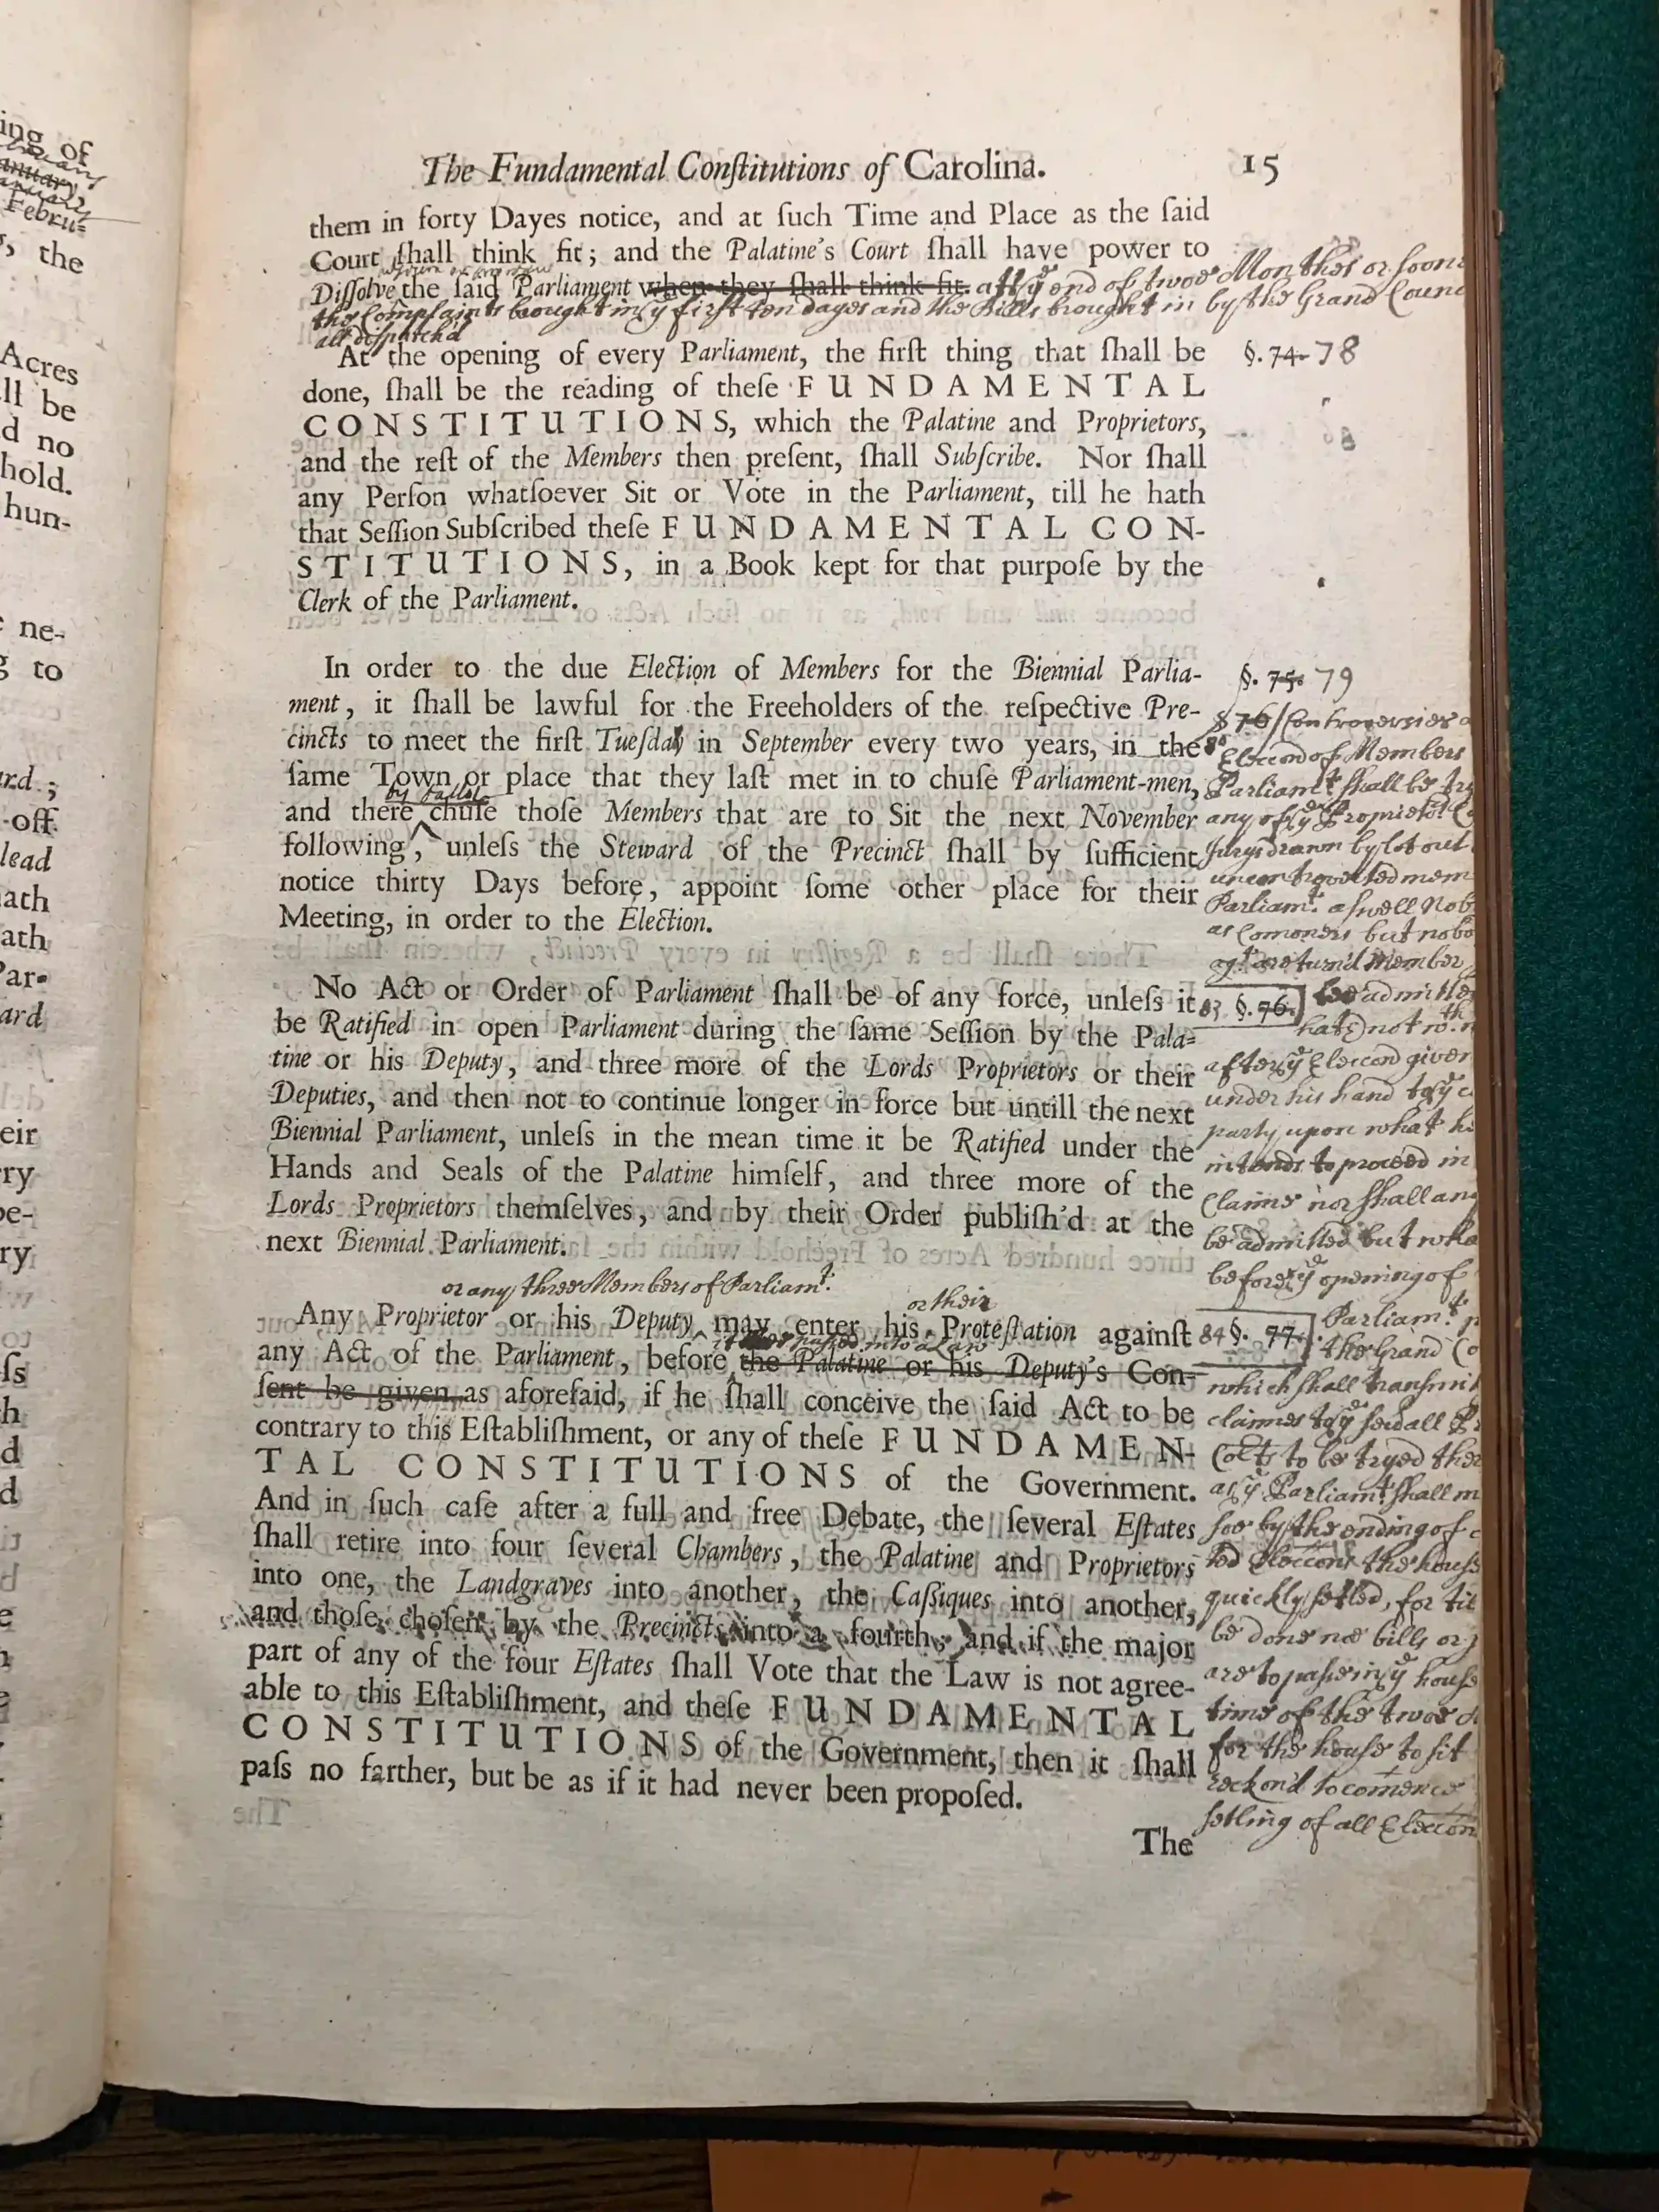 ing of
Febru=
, the
Acres
ll be
d no
hold.
hun-
ne-
g to
ard ;
off
lead
hath
ath
Par-
ard
eir
ry
pe-
ry
The Fundamental Conſtitutions of Carolina. 15
them in forty Dayes notice, and at ſuch Time and Place as the ſaid
Court ſhall think fit; and the Palatine's Court ſhall have power to
Diſſolve the ſaid Parliament when they ſhall think fit. att yᵉ end of twoe Monthes or soon
the Complaints brought in yᵉ first ten dayes and the Bills brought in by the Grand Coun
all dispatch'd
At the opening of every Parliament, the firſt thing that ſhall be §. 74. 78
done, ſhall be the reading of theſe FUNDAMENTAL
CONSTITUTIONS, which the Palatine and Proprietors,
and the reſt of the Members then preſent, ſhall Subſcribe. Nor ſhall
any Perſon whatſoever Sit or Vote in the Parliament, till he hath
that Seſſion Subſcribed theſe FUNDAMENTAL CON-
STITUTIONS, in a Book kept for that purpoſe by the
Clerk of the Parliament.
In order to the due Election of Members for the Biennial Parlia- §. 75. 79
ment, it ſhall be lawful for the Freeholders of the reſpective Pre-
cincts to meet the firſt Tueſday in September every two years, in the
ſame Town or place that they laſt met in to chuſe Parliament-men,
by Ballot
and there chuſe thoſe Members that are to Sit the next November
following, unleſs the Steward of the Precinct ſhall by ſufficient
notice thirty Days before, appoint ſome other place for their
Meeting, in order to the Election.
§ 76 Controversies
80 Eleccon of Members
Parliamᵗ shall be try
any of yᵉ Proprietᵗ Co
Jurys drawn by lot out
uncontroverted mem
Parliamᵗ. aswell Nob
as Comoners but nobo
agᵗ a return'd Member
be admitted
not wᵗʰ
after yᵉ Eleccon given
under his hand to yᵉ
party upon what h
intends to proceed in
Claime nor shall any
be admitted but who
before yᵉ opening of
Parliamᵗ.
the Grand Co
which shall transmit
claimes to yᵉ severall P
Coᵗˢ to be tryed the
as yᵉ Parliamᵗ shall m
soe by the ending of
ted Eleccons the house
quickly setled, for til
be done noe bills or
are to passe in yᵉ house
time of the twoe
for the house to sit
reckon'd to comence
setling of all Eleccon
No Act or Order of Parliament ſhall be of any force, unleſs it 83 §. 76.
be Ratified in open Parliament during the ſame Seſſion by the Pala=
tine or his Deputy, and three more of the Lords Proprietors or their
Deputies, and then not to continue longer in force but untill the next
Biennial Parliament, unleſs in the mean time it be Ratified under the
Hands and Seals of the Palatine himſelf, and three more of the
Lords Proprietors themſelves, and by their Order publiſh'd at the
next Biennial Parliament.
or any three Members of Parliamᵗ. or their
Any Proprietor or his Deputy may enter his Proteſtation againſt 84 §. 77.
passed into a Law
any Act of the Parliament, before the Palatine or his Deputy's Con-
ſent be given as aforeſaid, if he ſhall conceive the ſaid Act to be
contrary to this Eſtabliſhment, or any of theſe FUNDAMEN-
TAL CONSTITUTIONS of the Government.
And in ſuch caſe after a full and free Debate, the ſeveral Eſtates
ſhall retire into four ſeveral Chambers, the Palatine and Proprietors
into one, the Landgraves into another, the Caſſiques into another,
and thoſe choſen by the Precincts into a fourth, and if the major
part of any of the four Eſtates ſhall Vote that the Law is not agree-
able to this Eſtabliſhment, and theſe FUNDAMENTAL
CONSTITUTIONS of the Government, then it ſhall
paſs no farther, but be as if it had never been propoſed.
The